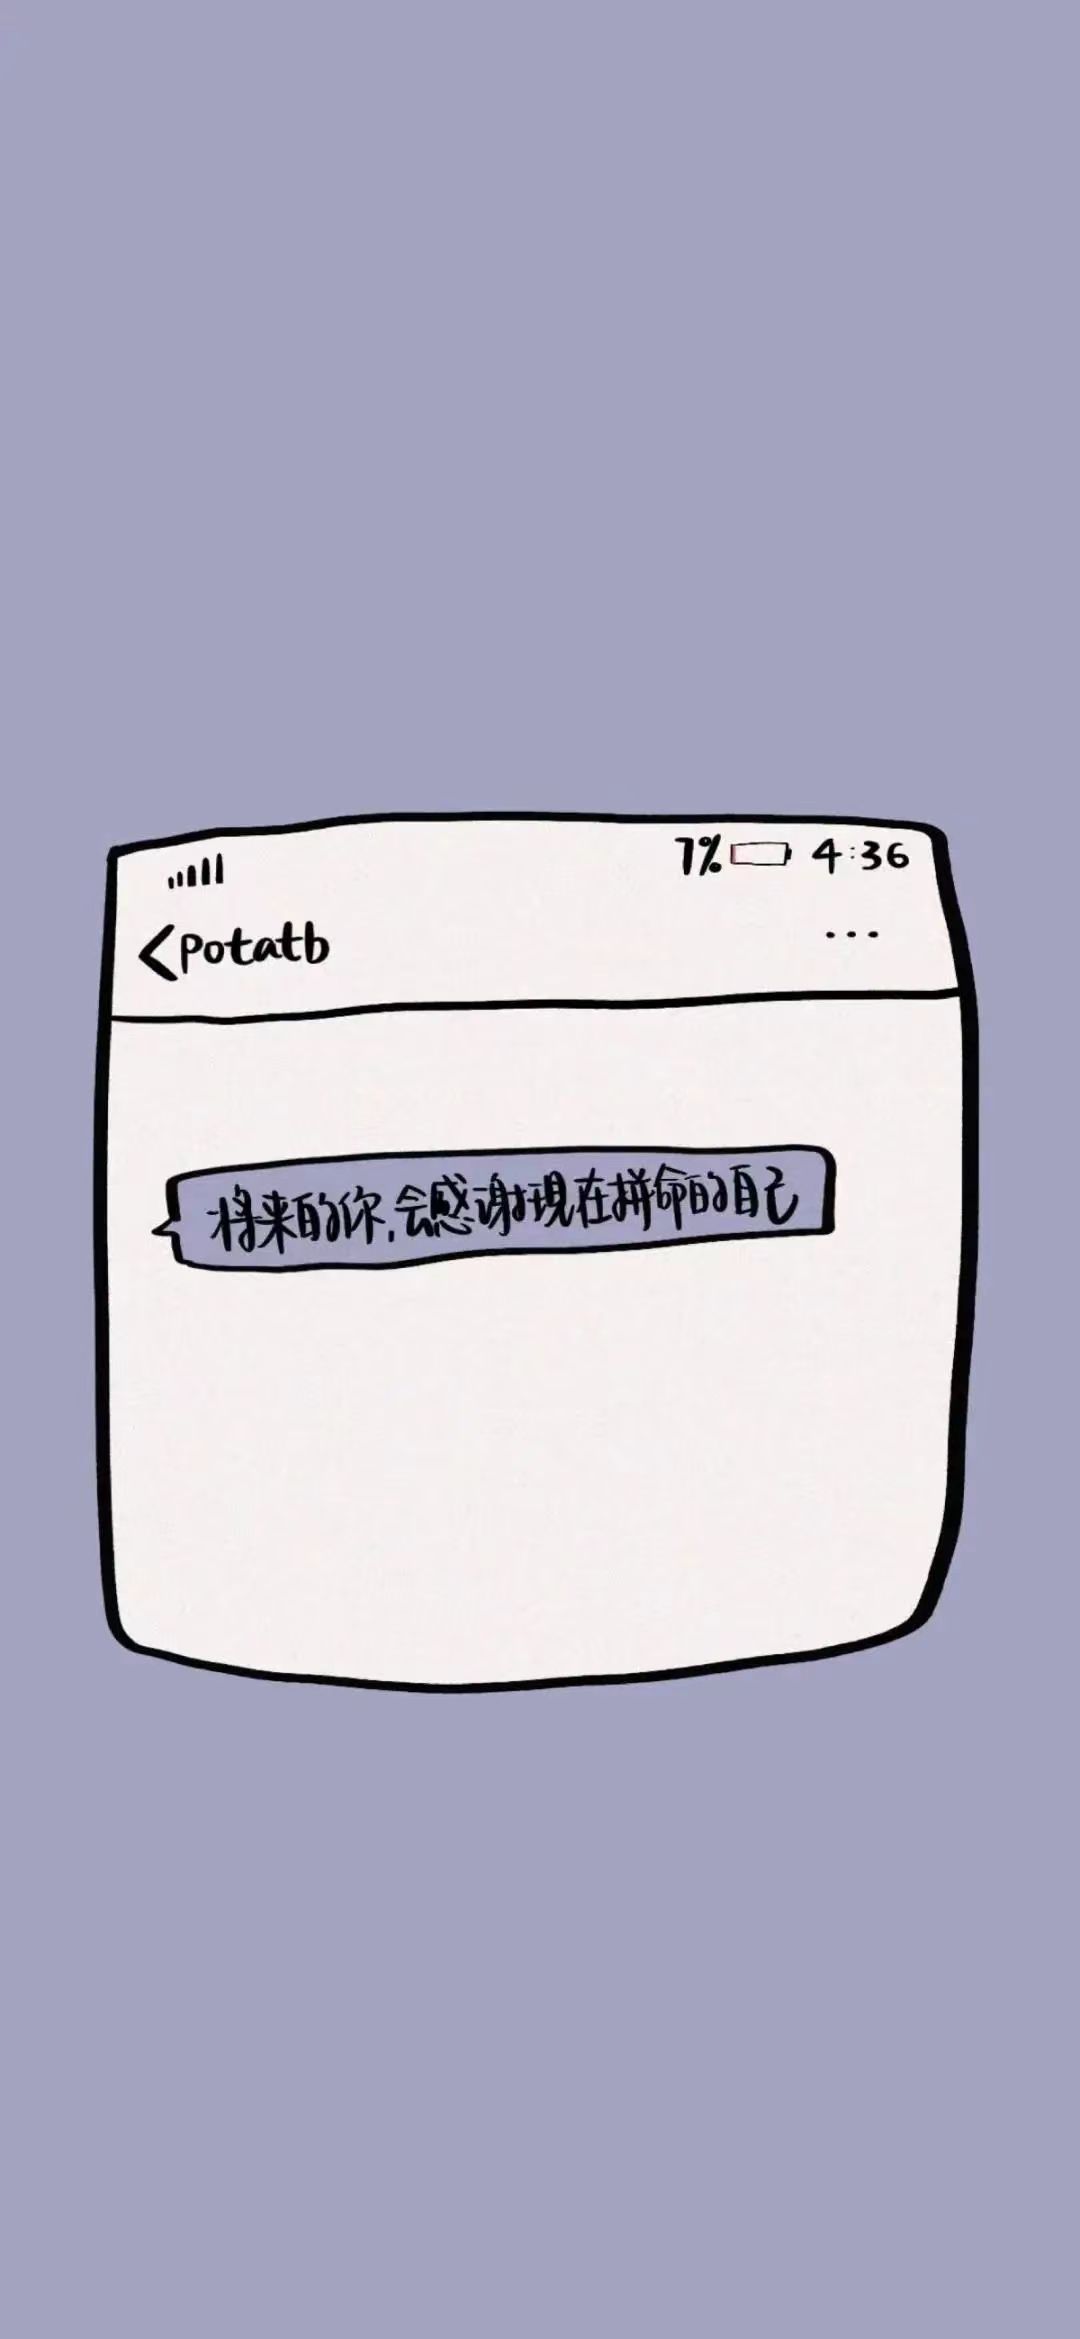 7% 4:36
<potatb
...
将来的你,会感谢现在拼命的自己